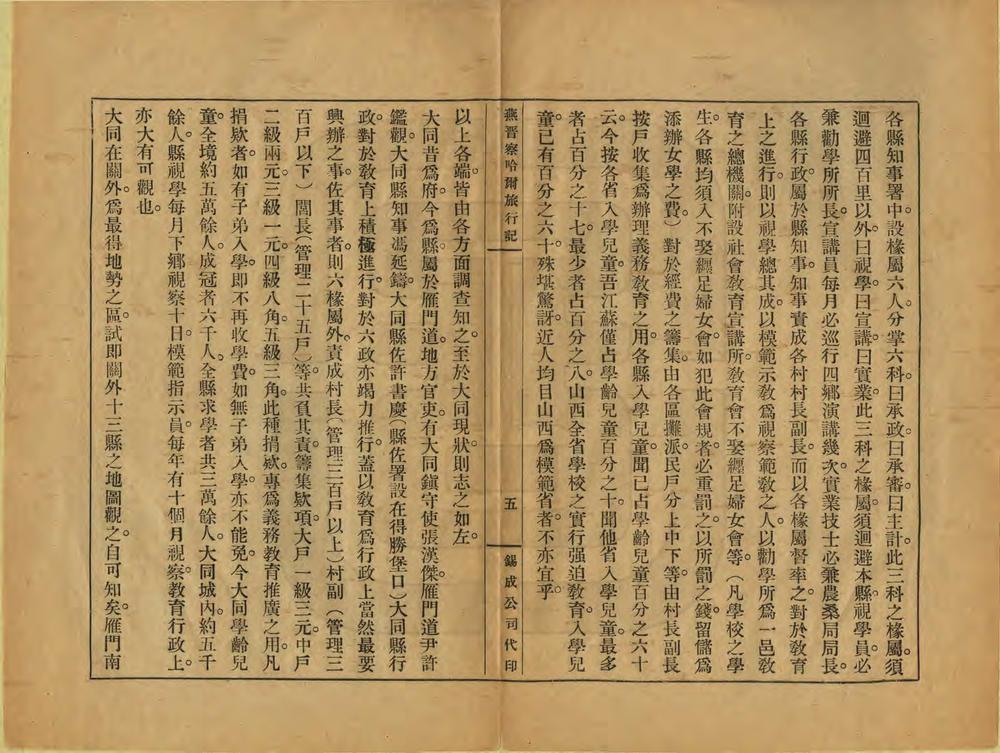 各縣知事署中。設椽屬六人分掌六科。曰承政。曰承審。曰主計。此三科之椽屬。須
迴避四百里以外。曰視學。曰宣講。曰實業。此三科之椽屬。須迴避本縣。視學員。必
兼勸學所所長。宣講員每月必巡行四鄉演講幾次。實業技士必兼農桑局局長。
各縣行政屬於縣知事。知事責成各村村長副長。而以各椽屬督率之。對於教育
上之進行。則以視學總其成。以模範示教爲視察範教之人。以勸學所爲一邑教
育之總機關。附設社會教育宣講所。教育會不娶纏足婦女會等。(凡學校之學
生。各縣均須入不娶纏足婦女會。如犯此會規者。必重罰之。以所罰之錢。留儲爲
添辦女學之費)對於經費之籌集。由各區攤派。民戶分上中下等。由村長副長
按戶收集。爲辦理義務教育之用。各縣入學兒童。聞已占學齡兒童百分之六十
云。今按各省入學兒童。吾江蘇僅占學齡兒童百分之十。聞他省入學兒童。最多
者占百分之十七。最少者占百分之八。山西全省學校之實行强迫教育。入學兒
童。已有百分之六十。殊堪驚訝。近人均目山西爲模範省者。不亦宜乎。
燕晋察哈爾旅行記
五
錫成公司代印
以上各端。皆由各方面調查知之。至於大同現狀。則志之如左。
大同昔爲府。今爲縣。屬於雁門道。地方官吏。有大同鎮守使張漢傑。雁門道尹許
鑑觀。大同縣知事馮延鑄。大同縣佐許書慶(縣佐署設在得勝堡口)大同縣行
政。對於敎育上積極進行。對於六政亦竭力推行。蓋以敎育爲行政上當然最要
興辦之事。佐其事者。則六椽屬外。責成村長(管理三百戶以上)村副(管理三
百戶以下)閭長(管理二十五戶)等。共負其責。籌集欵項。大戶一級三元。中戶
二級兩元。三級一元。四級八角。五級三角。此種捐欵。專爲義務教育推廣之用。凡
捐欵者。如有子弟入學。即不再收學費。如無子弟入學。亦不能免。今大同學齡兒
童。全境約五萬餘人。成冠者六千人。全縣求學者共三萬餘人。大同城內約五千
餘人。縣視學每月下鄉視察十日。模範指示員。每年有十個月視察。教育行政上。
亦大有可觀也。
大同在關外。爲最得地勢之區。試即關外十三縣之地圖觀之。自可知矣。雁門南